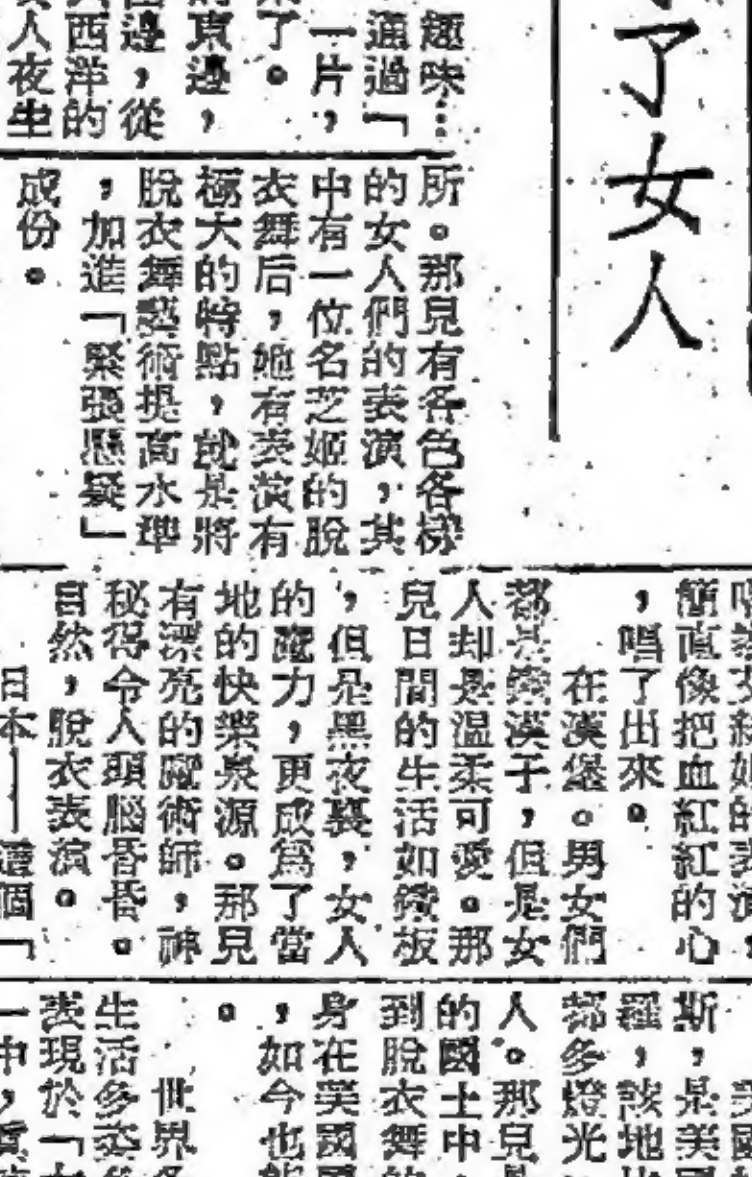 了女人
趣味⋮
通過「
一片，
了。
東邊，
邊，從
西洋的
人夜生
所。那兒有各色各樣
的女人們的表演，其
中有一位名芝姬的脫
衣舞后，她有表演有
極大的特點，就是將
脫衣舞藝術提高水準
，加進「緊張懸疑」
成份。
簡直像把血紅紅的心
，唱了出來。
在漢堡。男女們
都是鐵漢子，但是女
人却是溫柔可愛。那
兒日間的生活如鐵板
，但是黑夜裏，女人
的魔力，更成爲了當
地的快樂泉源。那兒
有漂亮的魔術師，神
秘得令人頭腦昏昏。
自然，脫衣表演。
日本——這個「
斯，是美國
羅，該地
都多燈光
人。那兒是
的國土中，
到脫衣舞的
身在英國
，如今也能
。
世界各
生活多姿
表現於「女
一中，